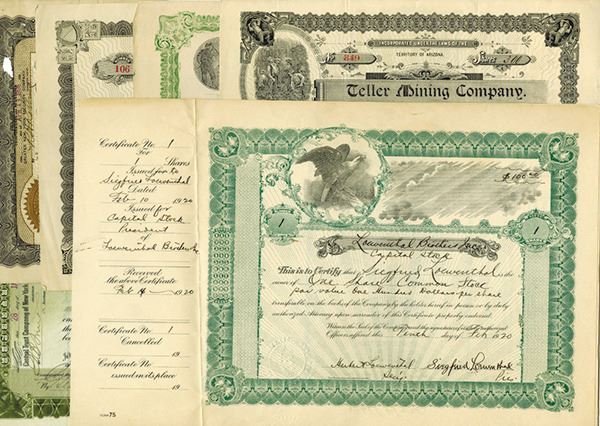 INCORPORATED UNDER THE LAWS OF THE
TERRITORY OF ARIZONA.
849
300
Teller Mining Company.
106
Central Trust Company of New York
Certificate No. 1
For
1 Shares
Issued to
Siegfried Loewenthal
Dated
Feb 10 1920
Issued for
Capital Stock
President
of
Loewenthal Brothers
Received
the above Certificate
Feb 1920
Certificate No. 1
Cancelled
19
Certificate No.
issued in its place
19
FORM 75
$100.00
1
1
Loewenthal Brothers Inc.
Capital Stock
This is to Certify that Siegfried Loewenthal is the
owner of One Share Common Stock
par value One Hundred Dollars per share
transferable on the books of the Company by the holder hereof in person or by duly
authorized Attorney upon surrender of this Certificate properly endorsed.
Witness the Seal of the Company and the signatures of its duly authorized
Officers affixed this Tenth day of Feb 1920
Siegfried Loewenthal
Pres.